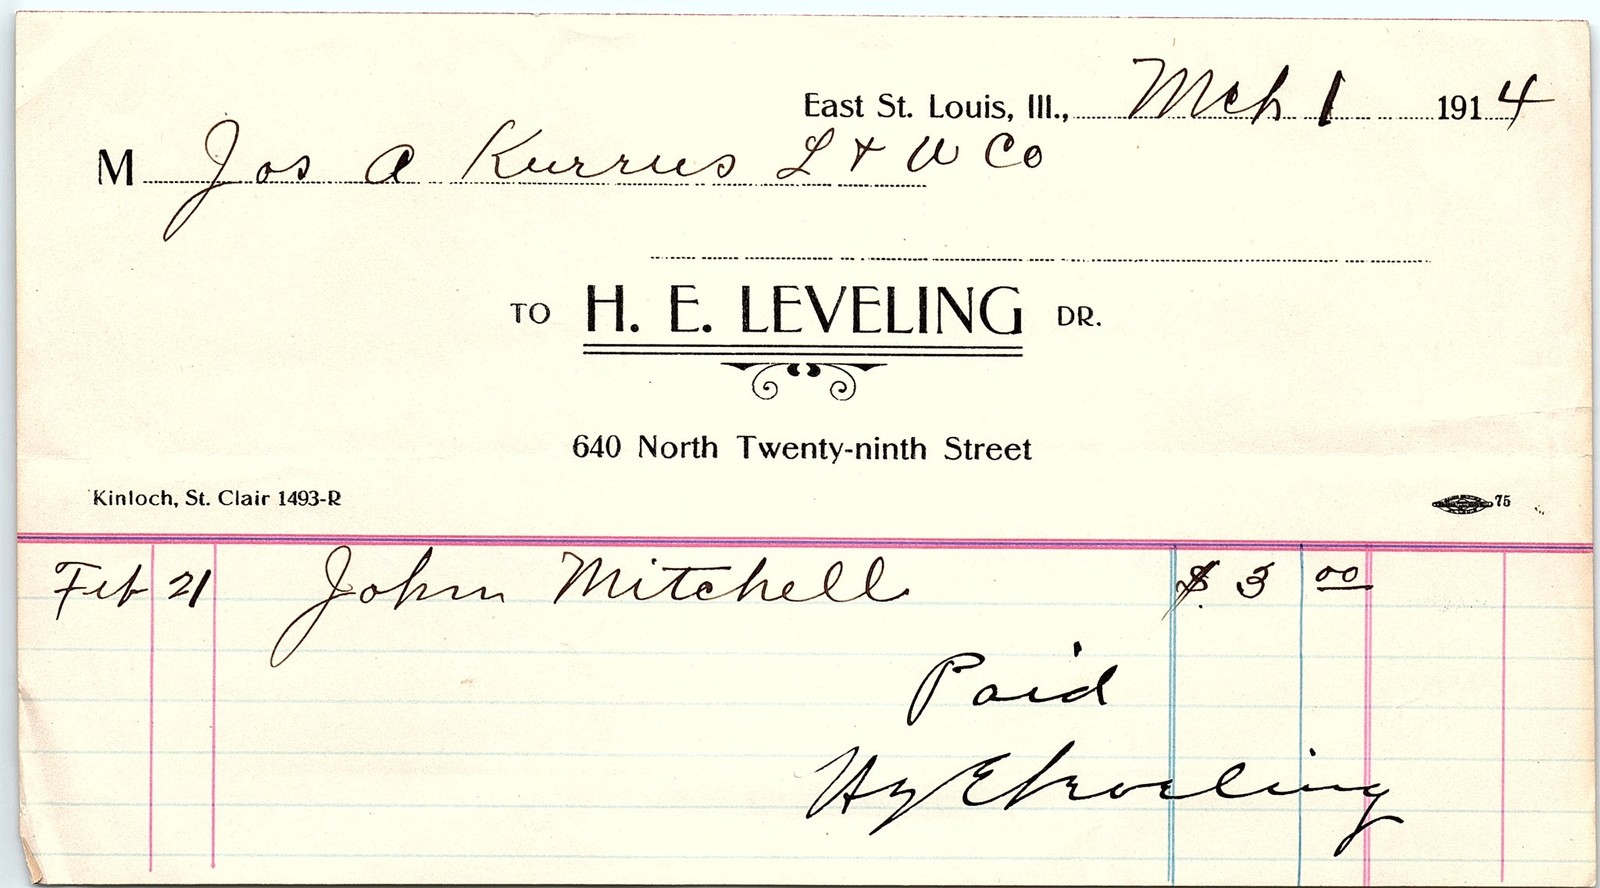 East St. Louis, Ill., Mch 1 1914
M Jos A Kurrus L & U Co
TO H. E. LEVELING DR.
640 North Twenty-ninth Street
Kinloch, St. Clair 1493-R
75
Feb 21 John Mitchell $ 3 00
Paid
Hy E Leveling